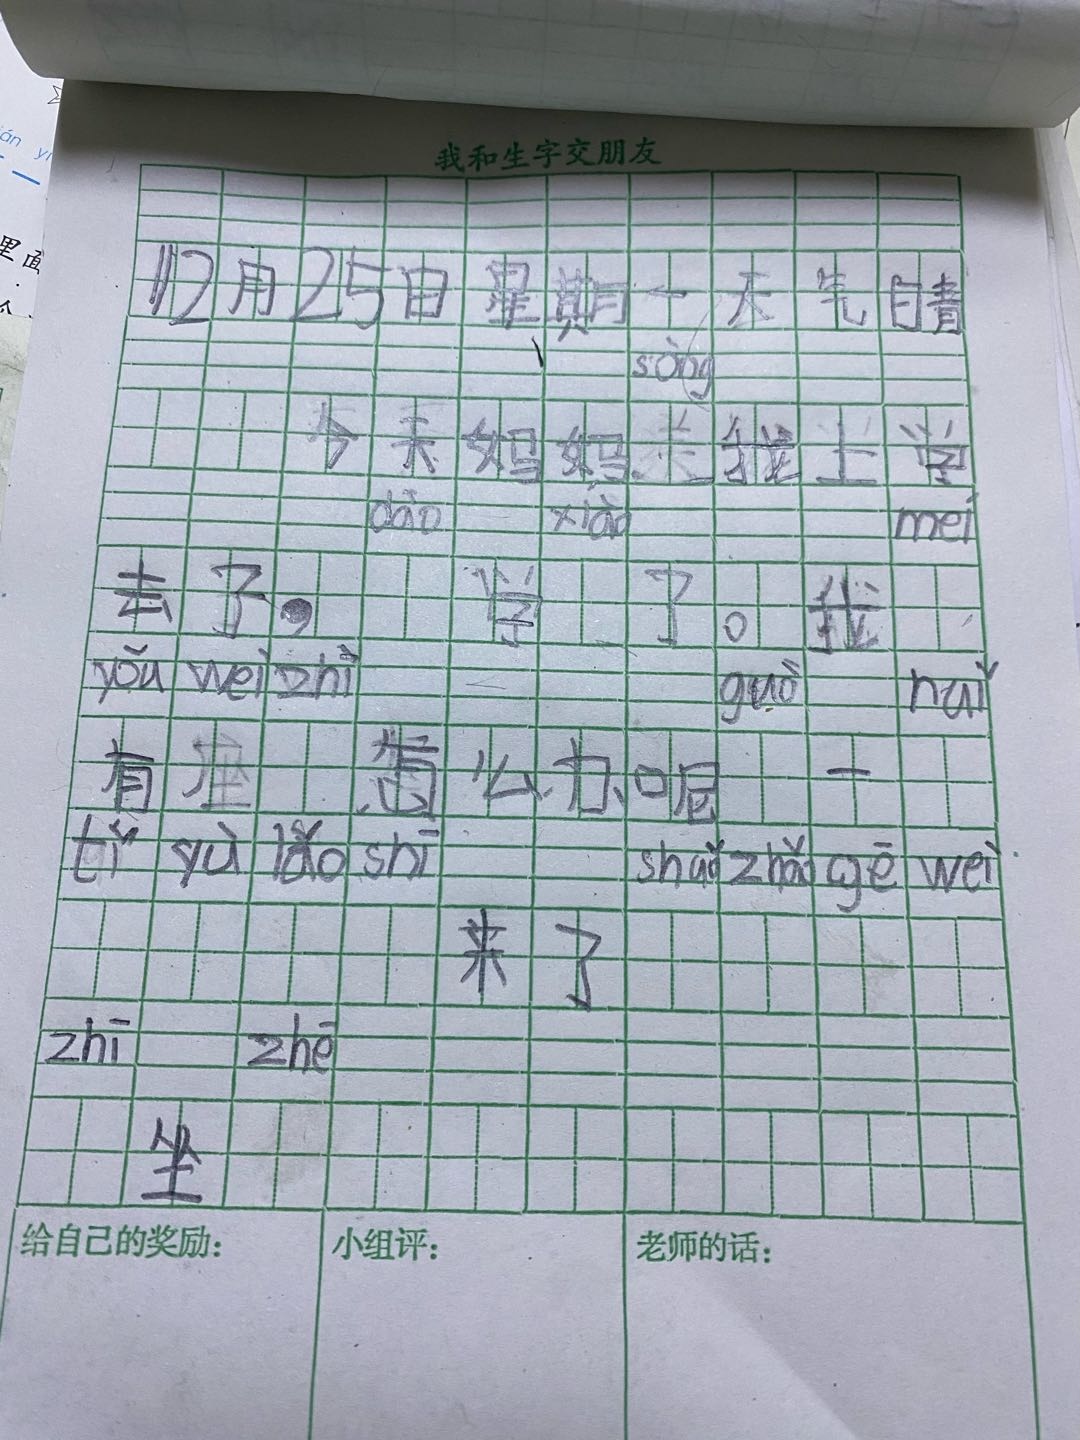 我和生字交朋友
12月25日星期一天气晴
sòng
今天妈妈来我上学
dào xiào mei
去了。学了。我
yǒu wèi zhì guò nǎi
有座怎么办呢一
tǐ yù lǎo shī shuō zhǎo gē wèi
来了
zhī zhē
坐
给自己的奖励: 小组评: 老师的话:
里面